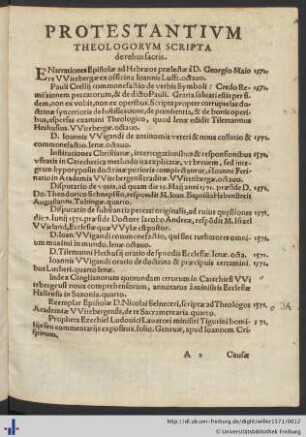 PROTESTANTIVM
THEOLOGORVM SCRIPTA
de rebus sacris.
ENarrationes Epistolæ ad Hebræos prælectæ à D. Georgio Maio 1571.
re VVitebergæ ex officina Ioannis Lufft. octauo.
Pauli Crellij commonefactio de verbis Symboli: Credo Re 1571.
missionem peccatorum, & de dicto Pauli. Gratia saluati estis per fi-
dem, non ex vobis, non ex operibus. Scripta propter corruptelas do-
ctrinæ synceriori de Iustificatione, de pœnitentia, & de bonis operi-
bus, aspersas examini Theologico, quod Ienæ edidit Tilemannus
Heshusius. VVitebergæ. octauo.
D. Ioannis VVigandi de antinomia veteri & noua collatio & 1571.
commonefactio. Ienæ. octauo.
Institutiones Christianæ, interrogationibus & responsionibus 1571.
vsitatis in Catechetica methodo ita explicatæ, vt breuem, sed inte-
gram hypotyposin doctrinæ purioris complectantur, à Ioanne Feri-
nario in Academia VVitebergensi traditæ. VVitebergæ. octauo.
Disputatio de votis, ad quam die 19. Maij anni 1571. præside D. 1571.
Do. Theodorico Schnepffio, respondit M. Ioan. Baptista Hebenstreit
Augustanus. Tubingæ. quarto.
Disputatio de fubitantia peccati originalis, ad cuius quæstiones 1571.
die 7. Iunij 1571. præside Doctore Iacobo Andreæ, respōdit M. Israel
VVieland, Ecclesiæ quæ VVylæ est pastor.
D. Ioan. VVigandi commonefactio, qui sint turbatores omni- 1571.
um maximi in mundo. Ienæ. octauo.
D. Tilemanni Heshusij oratio de synodis Ecclesiæ. Ienæ. octa. 1571.
Ioannis VVigandi oratio de doctrina & præcipuis certamini. 1571.
bus Lutheri. quarto Ienæ.
Index Cinglianorum quorundam errorum in Catechesi VVi 1571.
tebergensi noua comprehensorum, annotatus à ministris Ecclesiæ
Hallensis in Saxonia. quarto.
Exemplar Epistolæ D. Nicolai Selnecceri, scriptæ ad Theologos 1571.
Academiæ VVitebergensis, de re Sacramentaria. quarto.
Propheta Ezechiel Ludouici Lauateri ministri Tigurini homi- 1571.
lijs seu commentarijs expositus. folio. Geneuæ, apud Ioannem Cri-
spinum.
A 2 Causæ
http://dl.ub.uni-freiburg.de/diglit/willer1571/0012
© Universitätsbibliothek Freiburg